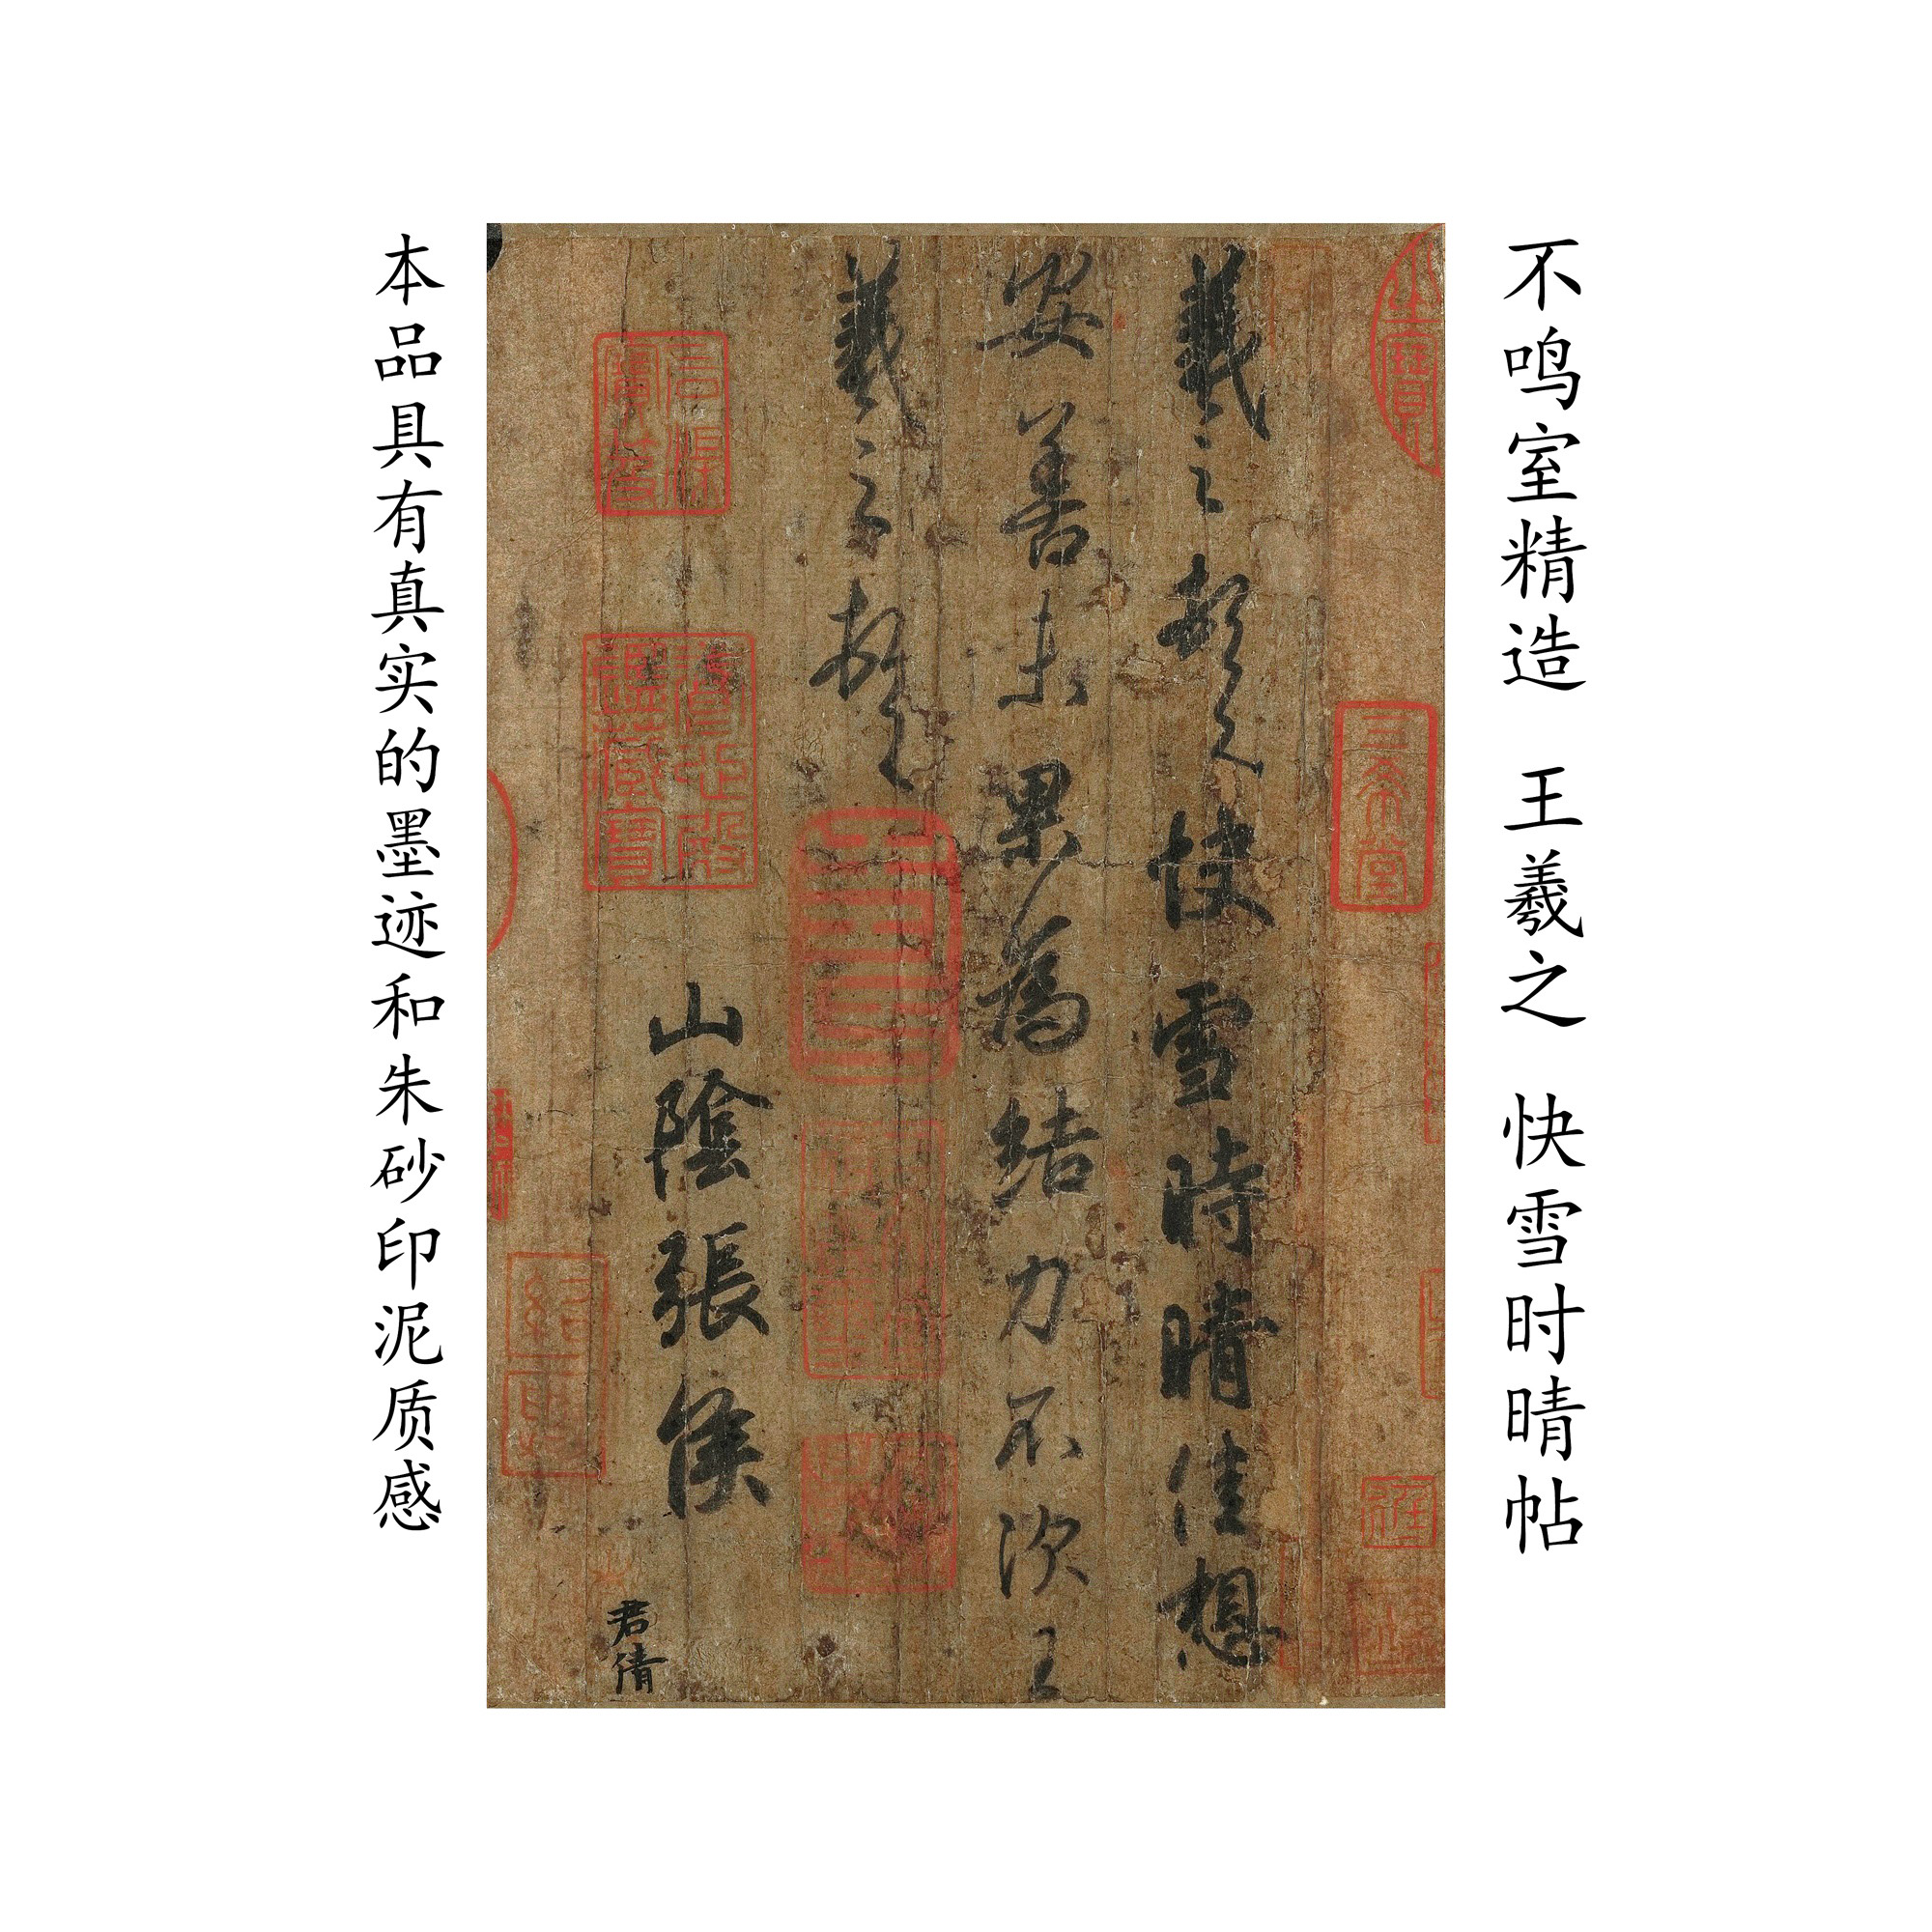 不鸣室精造 王羲之 快雪时晴帖
羲之頓首快雪時晴佳想
安善未果為結力不次王
羲之頓首
山陰張侯
君倩
三希堂
本品具有真实的墨迹和朱砂印泥质感